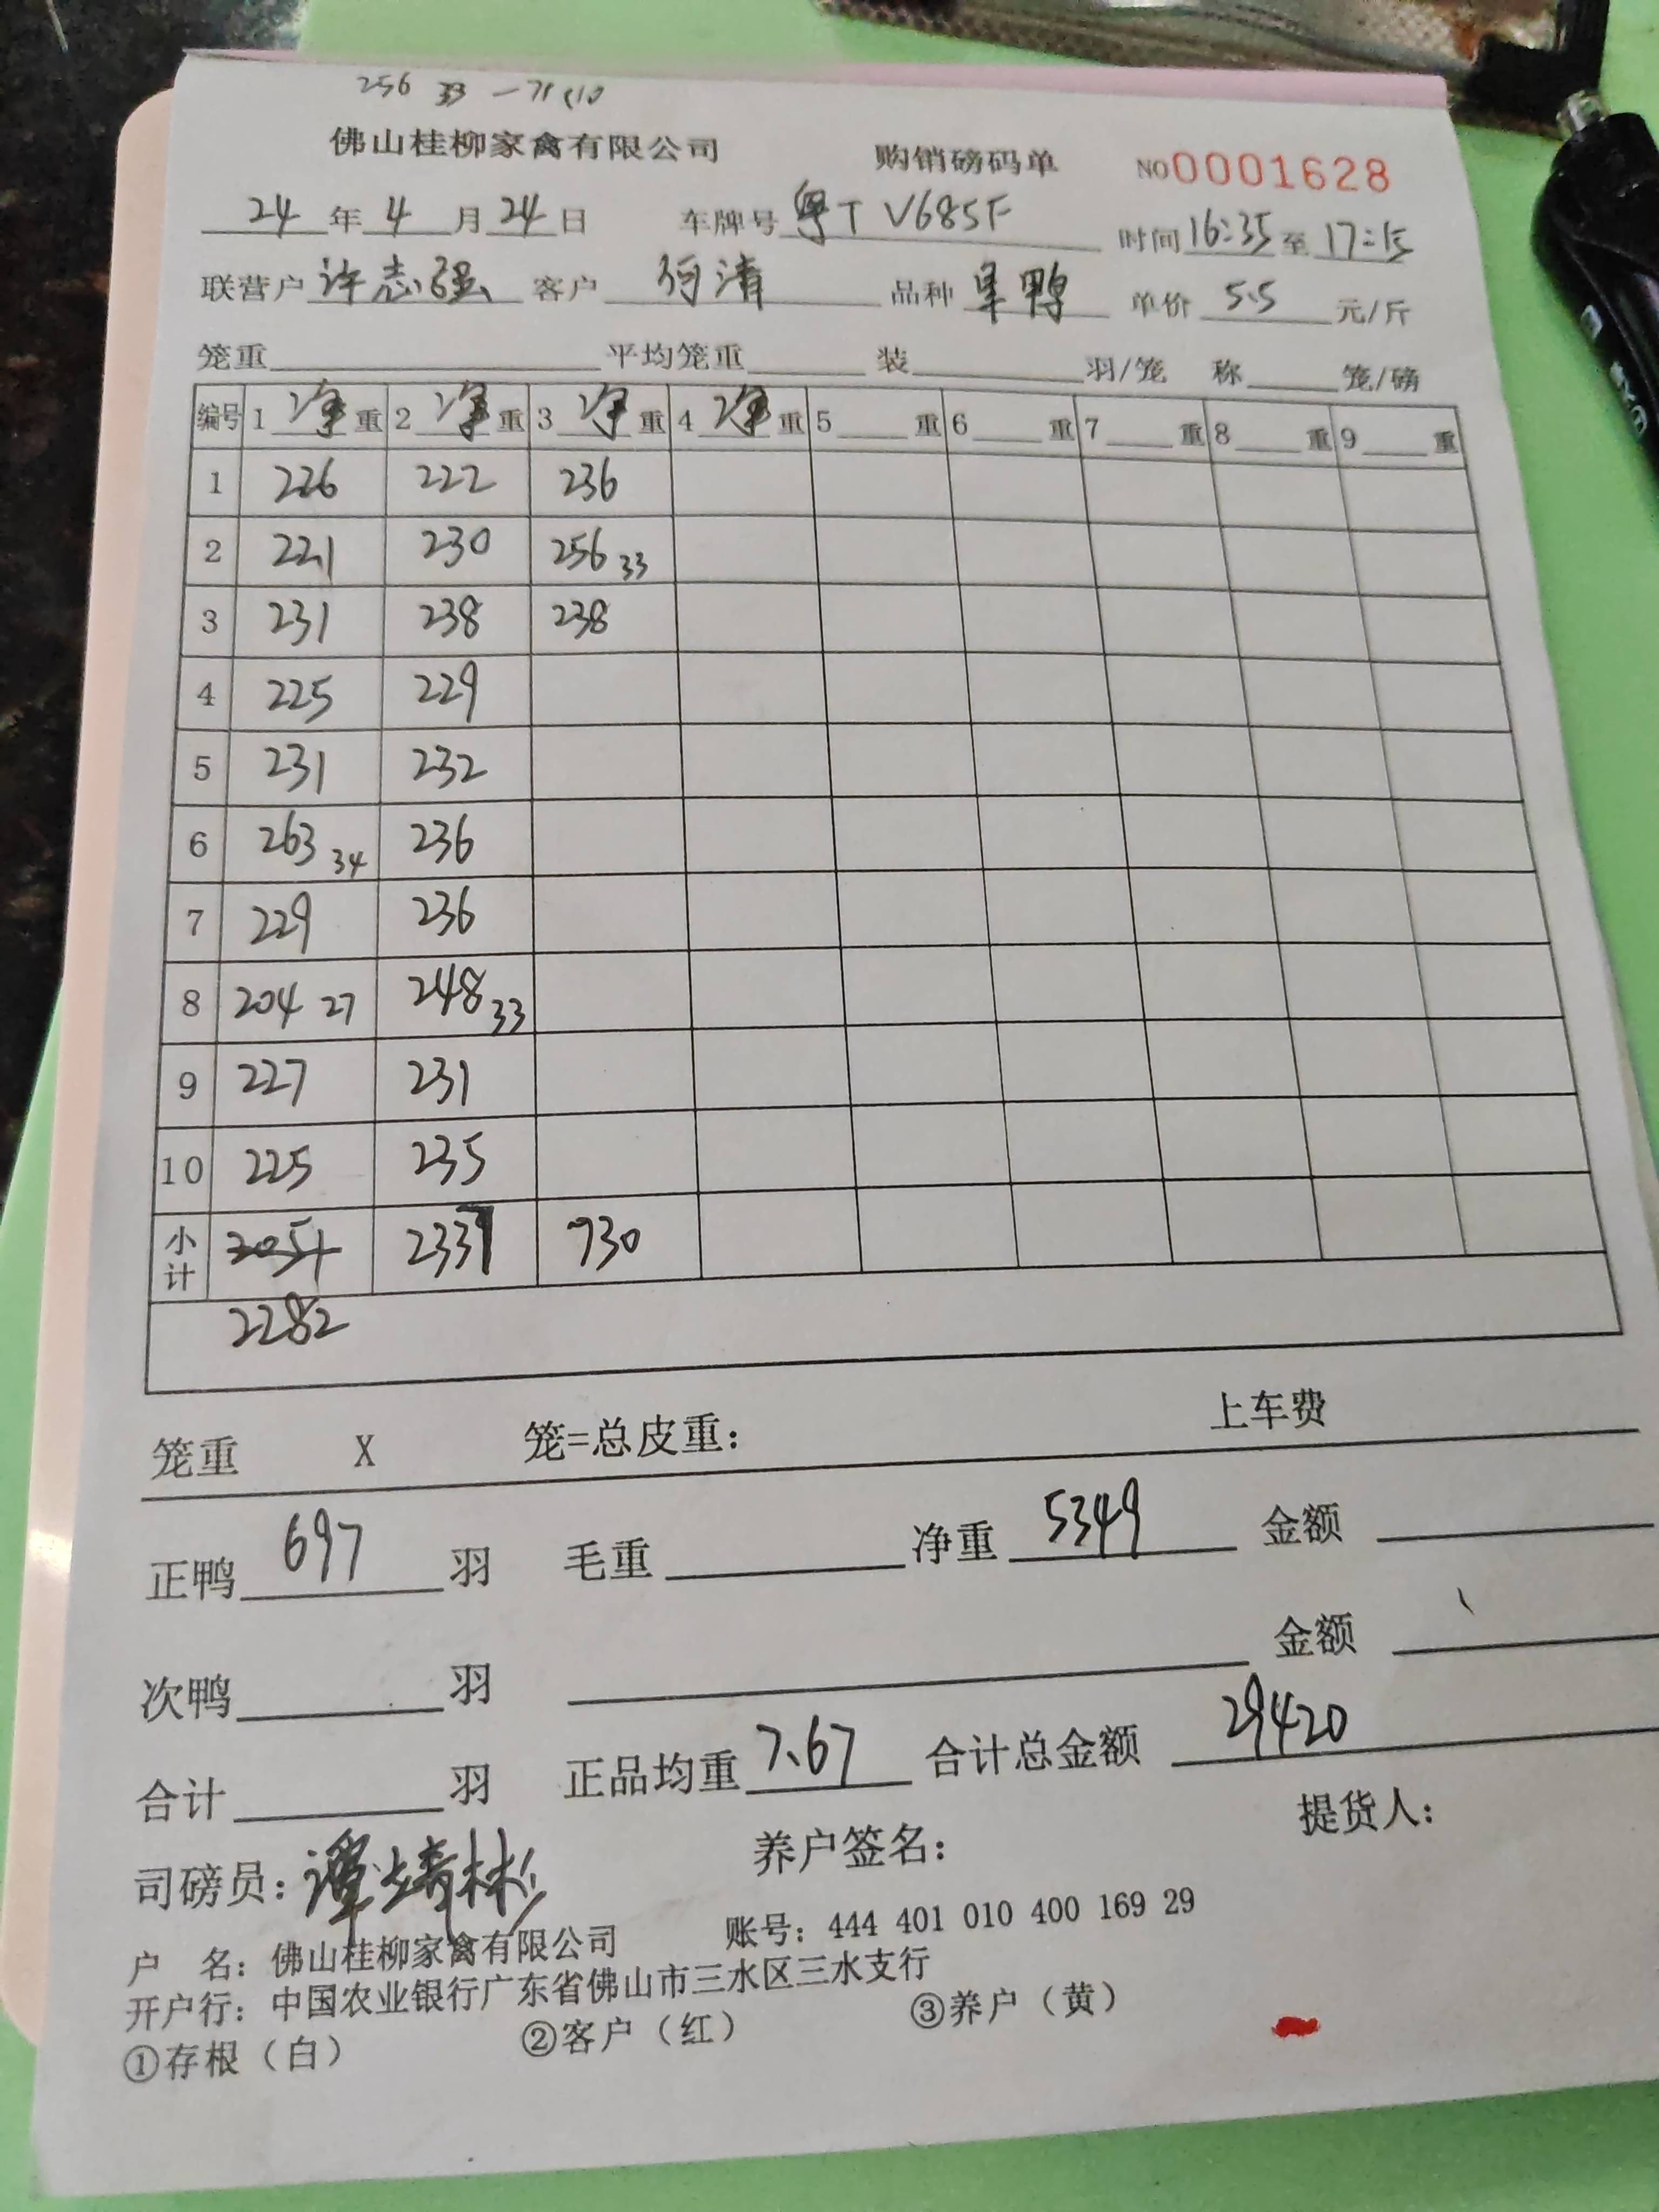 256 33
佛山桂柳家禽有限公司 购销磅码单 NO0001628
24年4月24日 车牌号粤T V685F 时间16:35至17:15
联营户许志强 客户何清 品种旱鸭 单价5.5元/斤
笼重 平均笼重 装 羽/笼 称 笼/磅
编号 1净重 2净重 3净重 4净重 5重 6重 7重 8重 9重
1 226 222 236
2 221 230 256 33
3 231 238 238
4 225 229
5 231 232
6 263 34 236
7 229 236
8 204 27 248 33
9 227 231
10 225 235
小计 2054 2337 730
2282
笼重 X 笼=总皮重: 上车费
正鸭697羽 毛重 净重5349 金额
次鸭 羽 金额
合计 羽 正品均重7.67 合计总金额29420
司磅员:谭靖彬 养户签名: 提货人:
户 名:佛山桂柳家禽有限公司 账号:444 401 010 400 169 29
开户行:中国农业银行广东省佛山市三水区三水支行
①存根(白) ②客户(红) ③养户(黄)